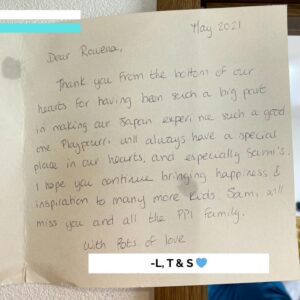 May 2021
Dear Rowena,
Thank you from the bottom of our
hearts for having been such a big part
in making our Japan experience such a good
one. Playpourri will always have a special
place in our hearts, and especially Sami's.
I hope you continue bringing happiness &
inspiration to many more kids. Sami will
miss you and all the PPI family.
With lots of love
-L, T & S💙